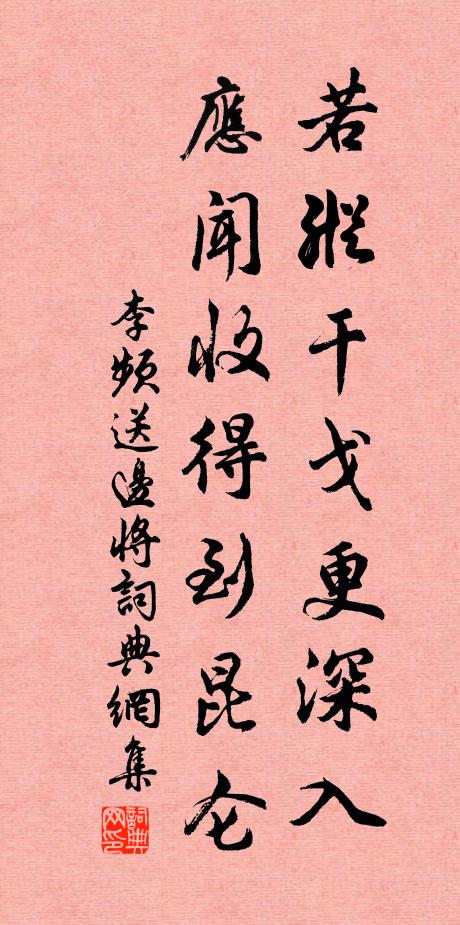 若縱干戈更深入
應聞收得到昆仑
李頻送邊將詞典網集
詞典网印